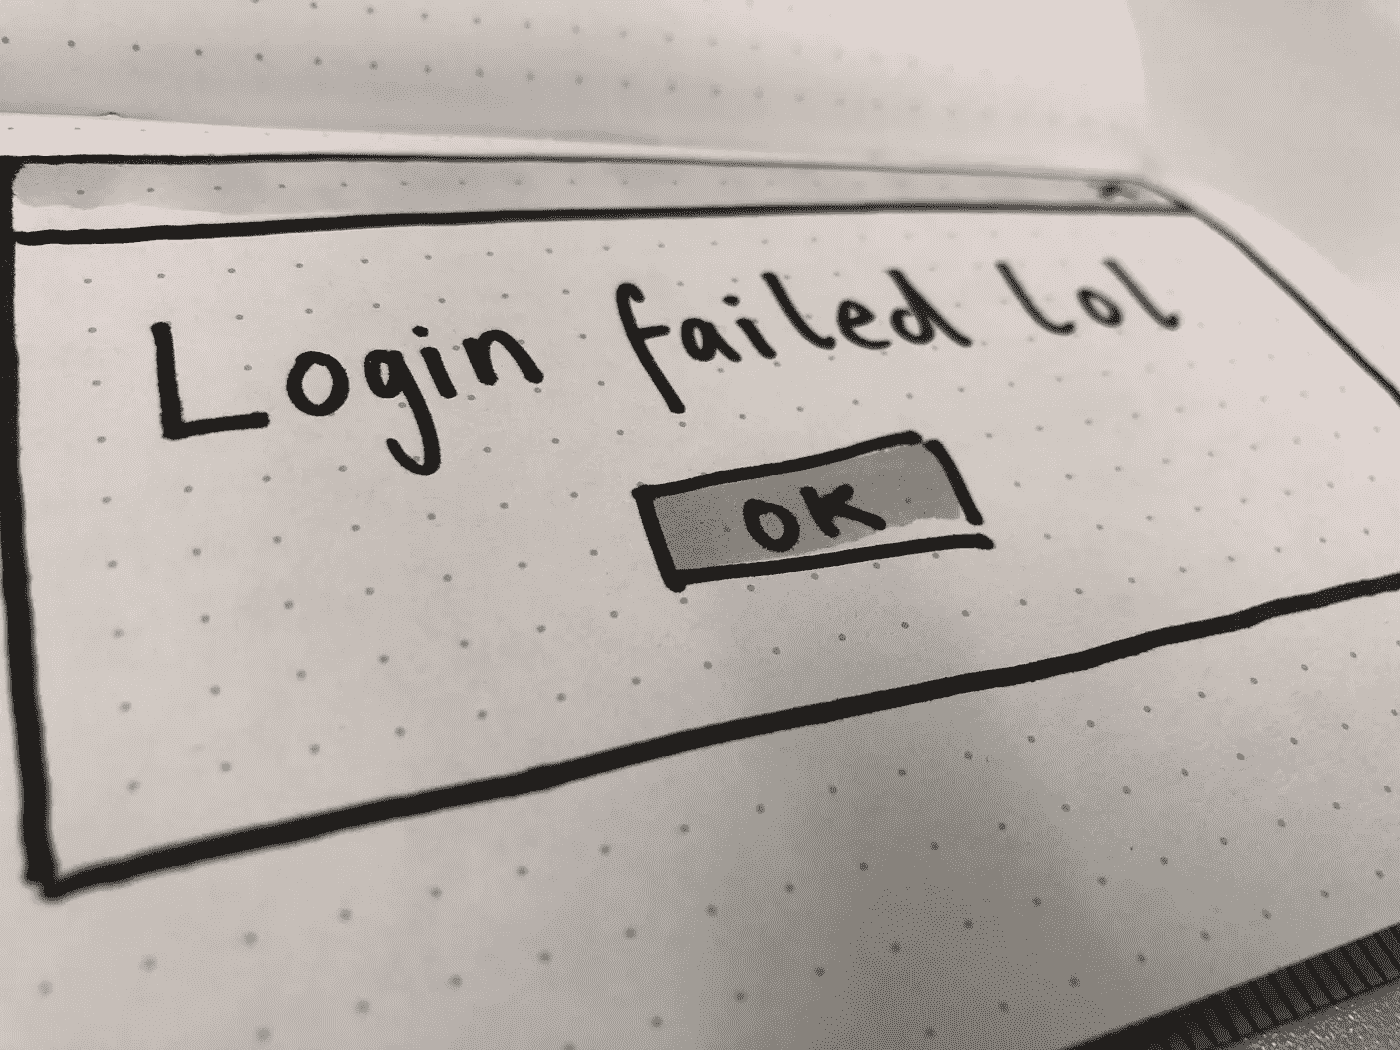 Login failed lol
OK